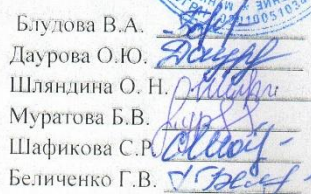 Блудова В.А.
Даурова О.Ю.
Шляндина О. Н.
Муратова Б.В.
Шафикова С.Р.
Беличенко Г.В.